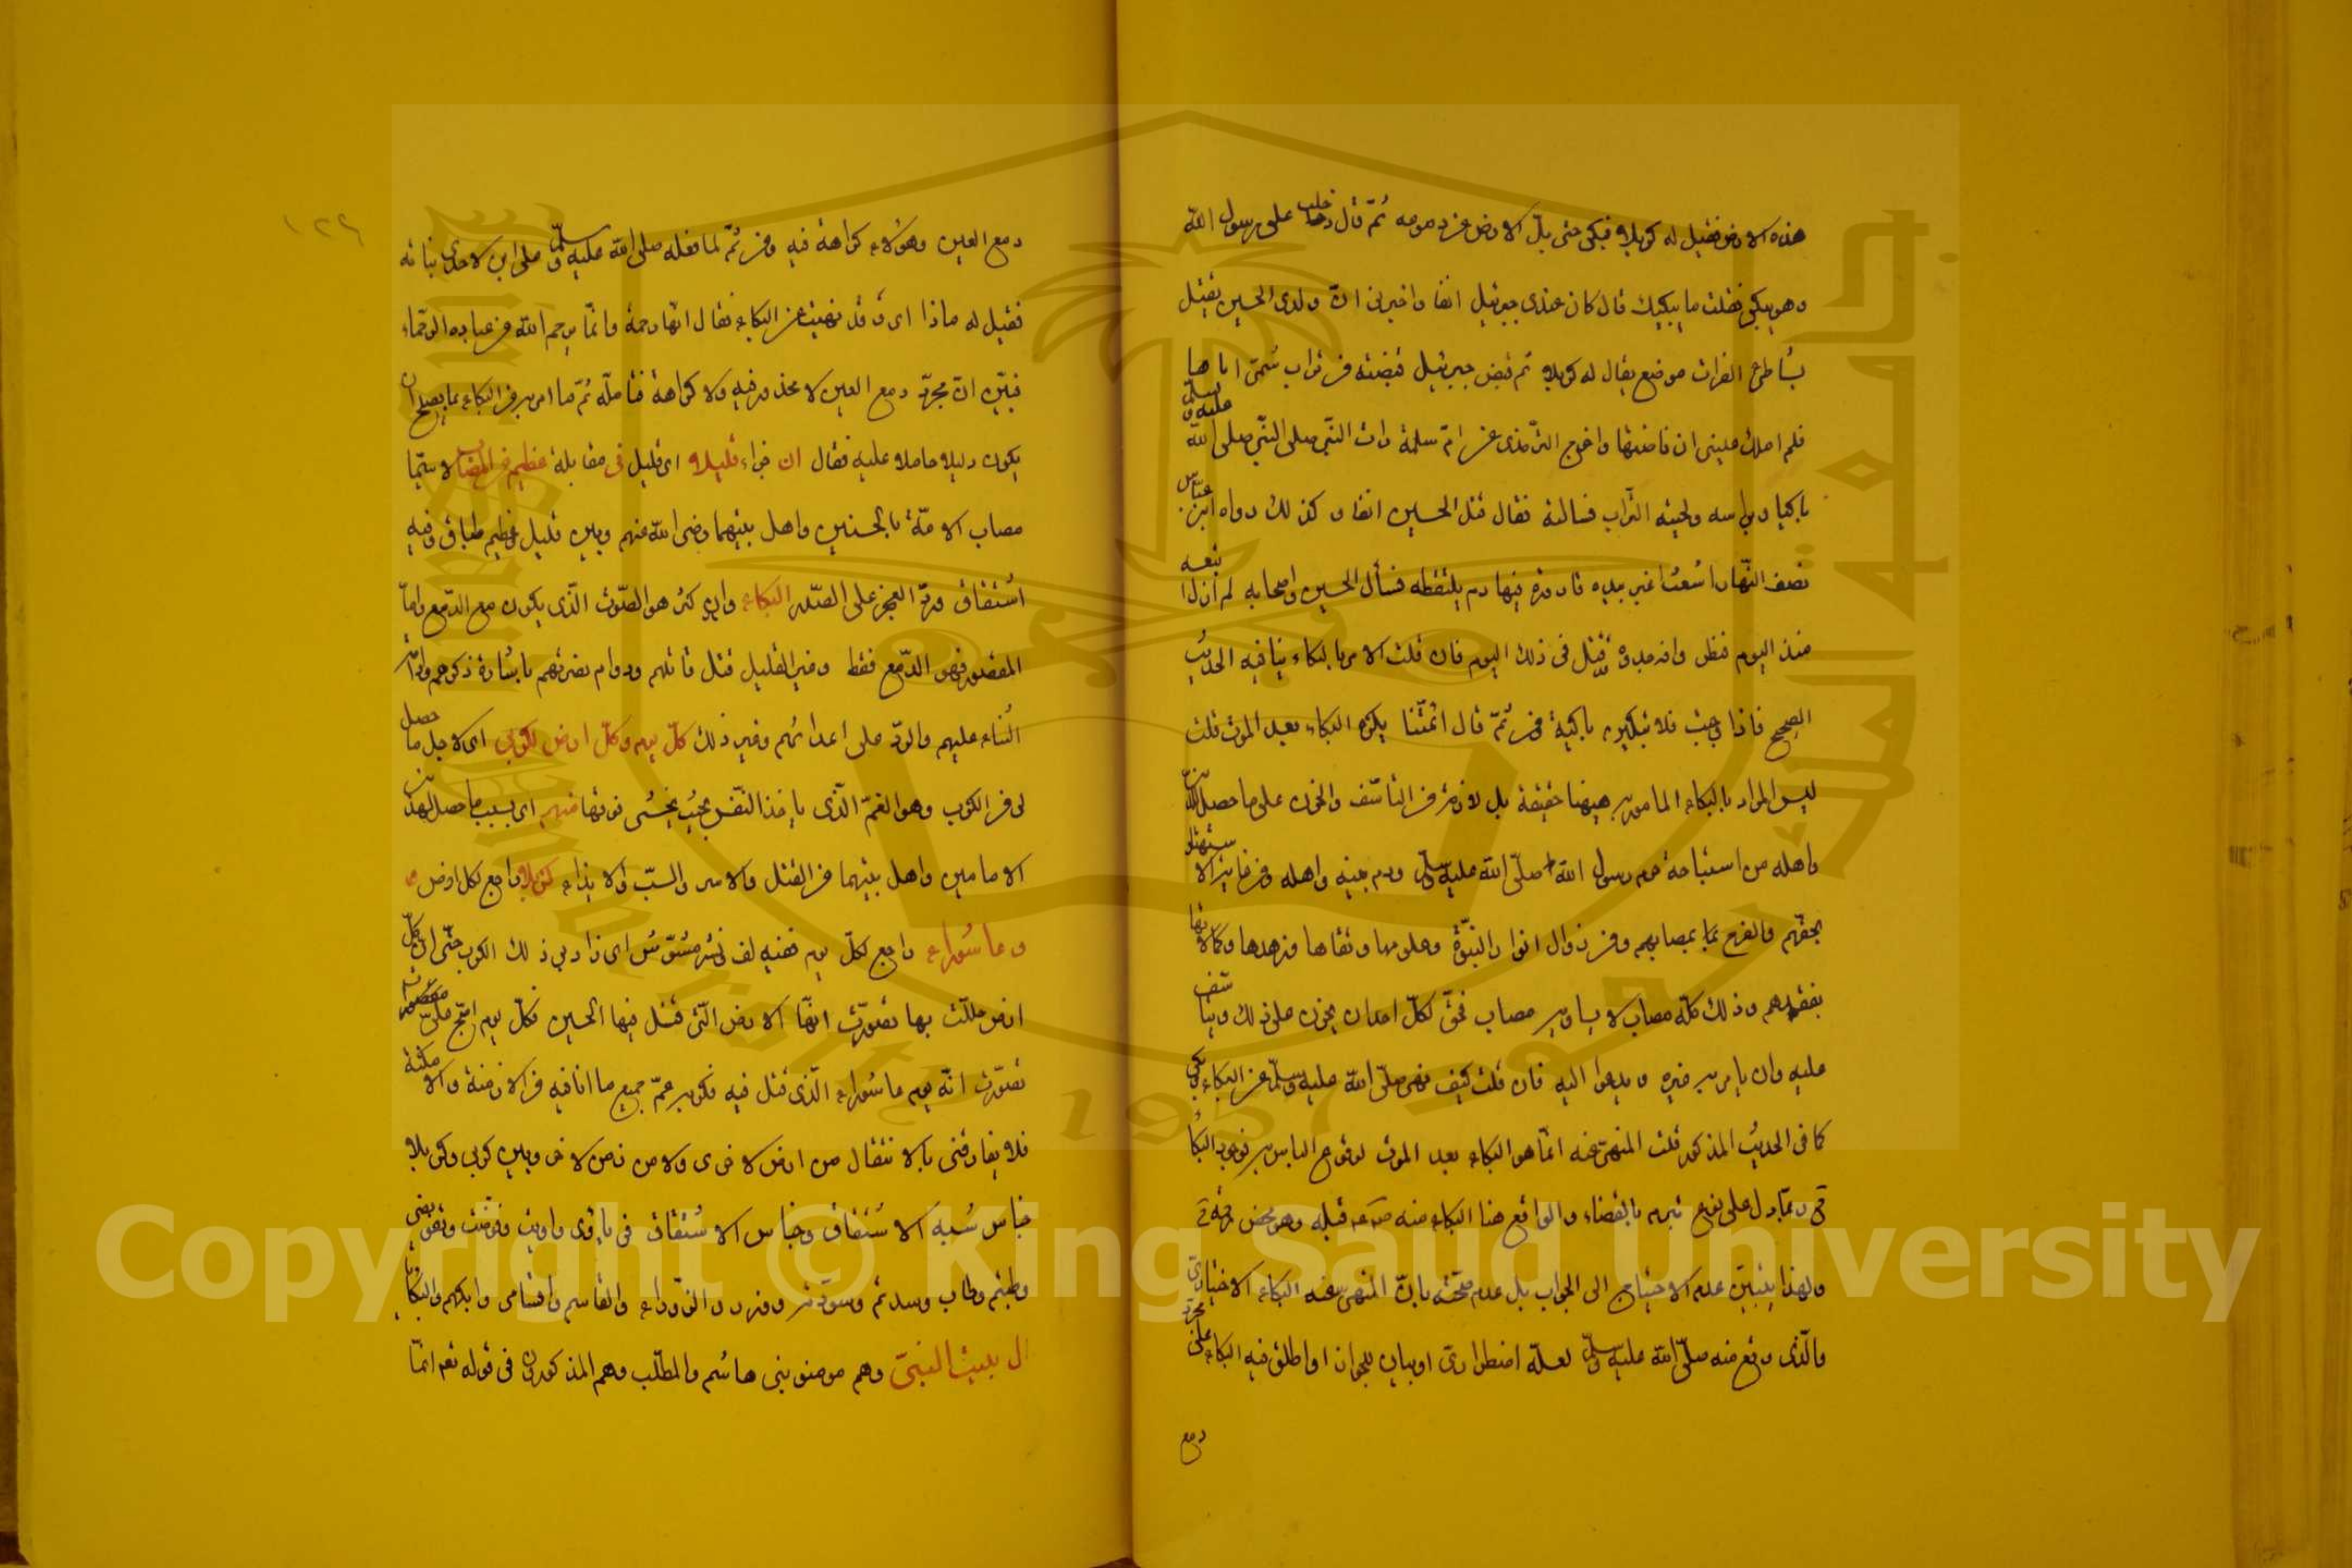 هذه الارض فقيل له كربلا فبكى حتى بل الارض من دموعه ثم قال دخلت على رسول الله
وهو يبكى فقلت ما يبكيك قال كان عندى جبرئيل انفا واخبرنى ان ولدى الحسين يقتل
بشاطئ الفرات موضع يقال له كربلا ثم قبض جبرئيل قبضة من تراب شمنى اياها
فلم املك عينى ان فاضتا واخرج الترمذى عن ام سلمة رات النبى صلى النبى صلى الله عليه وسلم
باكيا وبراسه ولحيته التراب فسالته فقال قتل الحسين انفا وكذلك رواه ابن عباس
نصف النهار اشعث اغبر بيده قارورة فيها دم يلتقطه فسأل الحسين واصحابه لم ازل اتبعه
منذ اليوم فنظر وا فوجدوه قتل فى ذلك اليوم فان قلت الامر بالبكاء ينافيه الحديث
الصحيح فاذا وجبت فلا تبكين باكية ومن ثم قال ائمتنا يكره البكاء بعد الموت قلت
ليس المراد بالبكاء المامور به هيهنا حقيقة بل لازمه من التأسف والحزن على ما حصل للدين
واهله من استباحة حرم رسول الله صلى الله عليه وسلم ودم بنيه واهله ومن فاته الاستهتار
بحقهم والفرح بما بمصابهم ومن زوال انوار النبوة وعلومها وتقاها وزهدها وكمالاتها
بفقدهم وذلك كله مصاب لا يساويه مصاب فحق لكل احد ان يحزن على ذلك ويتأسف
عليه وان يامر به غيره ويدعوا اليه فان قلت كيف نهى صلى الله عليه وسلم عن البكاء وبكى
كما فى الحديث المذكور قلت المنهى عنه انما هو البكاء بعد الموت لوقوع الياس به فوجود البكاء
ربما دل على نوع تبرم بالقضاء والواقع هنا البكاء منه قبله وهو محض رقة
ولهذا يتبين عدم الاحتياج الى الجواب بل عدم صحته بان المنهى عنه البكاء الاختيارى
والذى وقع منه صلى الله عليه وسلم لعله اضطرارى او بيان للجواز او اطلق فيه البكاء على مجرد
دمع
١٢٦
دمع العين وهو لا كراهة فيه ومن ثم لما فعله صلى الله عليه وسلم على ابن لاحدى بناته
فقيل له ماذا اى وقد نهيت عن البكاء فقال انها رحمة وانما يرحم الله من عباده الرحماء
فبين ان مجرد دمع العين لا محذور فيه ولا كراهة فتامله ثم لما امر به من البكاء بما يصلح ان
يكون دليلا حاملا عليه فقال ان قليلا اى قليل فى مقابلة عظيم من المصاب لا سيما
مصاب الامة بالحسنين واهل بيتهما رضى الله عنهم وبين قليل وعظيم طباق وفيه
اشتقاق ورد العجز على الصدر البكاء وان كثر هو الصوت الذى يكون مع الدمع واما
المقصور فهو الدمع فقط وغير القليل قتل قاتلهم ودوام نصرتهم باشادة ذكرهم
الثناء عليهم والرد على اعدائهم وغير ذلك كل يوم وكل ارض لكربى اى لاجل ما حصل
لى من الكرب وهو الغم الذى ياخذ النفس بحيث يخشى فوتها منهم اى بسبب ما حصل لهذين
الامامين واهل بيتهما من القتل والاسر والسب والايذاء كربلا راجع لكل ارض
وعاشوراء راجع لكل يوم ففيه لف نشر مشوش اى زاد بى ذلك الكرب حتى ان كل
ارض حللت بها تصورت انها الارض التى قتل فيها الحسين فكل يوم
تصورت انه يوم عاشوراء الذى قتل فيه فكربه عم جميع ما انا فيه من الازمنة والامكنة
فلا يفارقنى بالانتقال من ارض لاخرى ولا من زمن لاخر وبين كربى وكربلا
جناس شبه الاشتقاق وجناس الاشتقاق فى
وطبتم وطاب وسدتم وسودته والقاسم وابكهم والبكاء
ال بيت النبى وهم مومنو بنى هاشم والمطلب وهم المذكورون فى قوله تعم انما